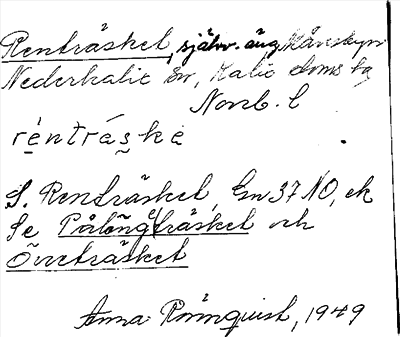 Renträsket, självst. äng Månsbyn
Nederkalix sn, Kalix doms tg
Norrb. l
réntráskè
S. Renträsket, Gn 37 NO, ek
Se Pålängträsket och
Öveträsket
Anna Rönnquist, 1949